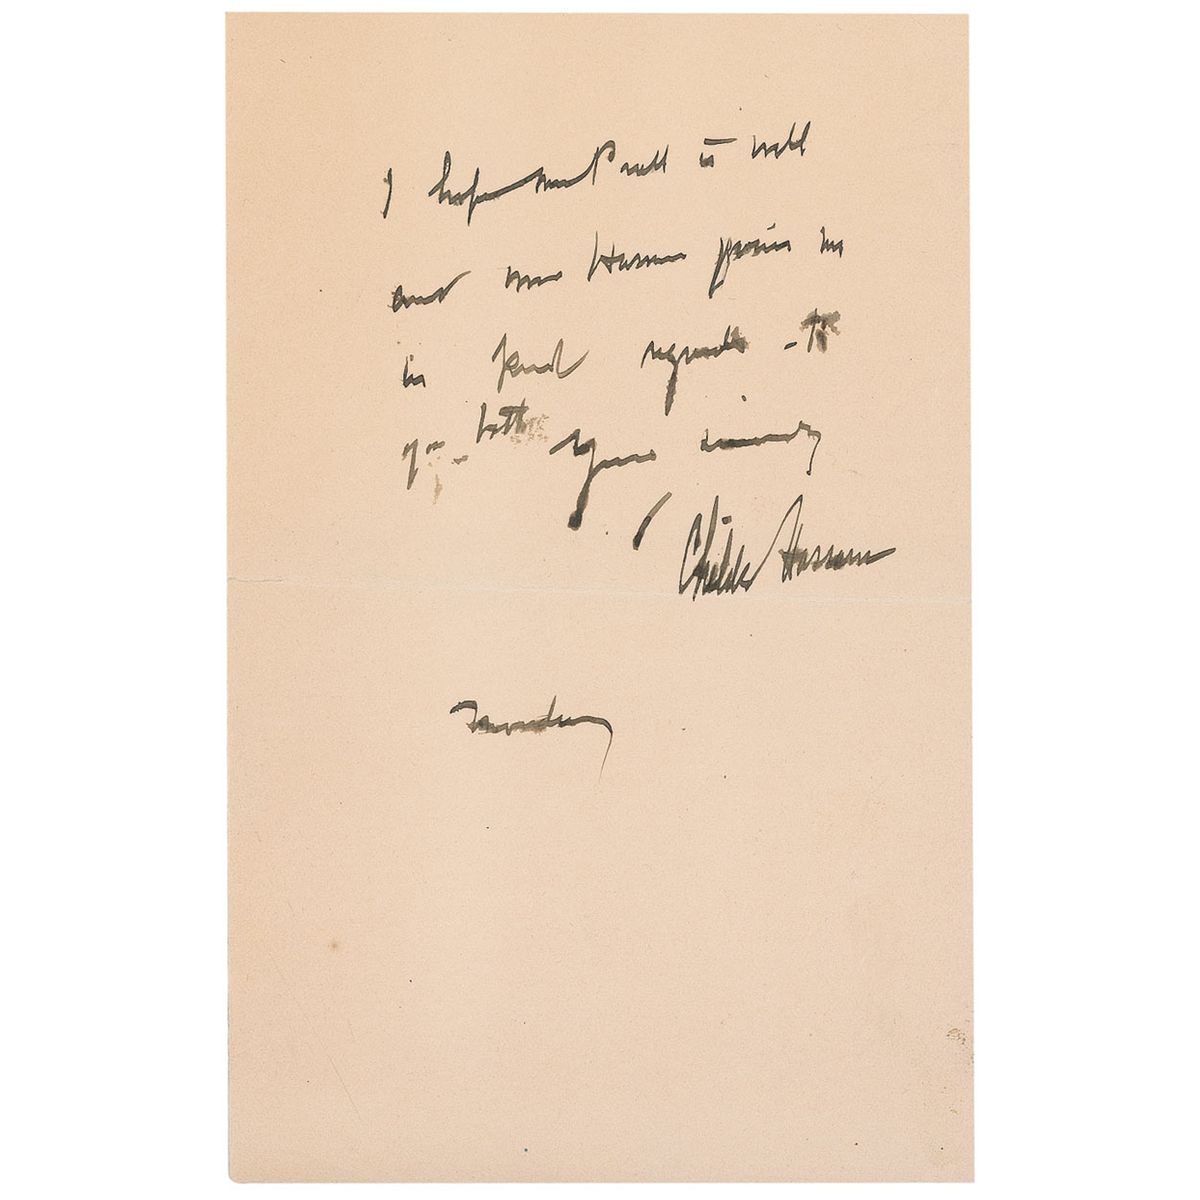 I hope Mrs is well
and Mrs Hassam joins me
in kind regards - to
you - both Yours sincerely
Childe Hassam
Monday